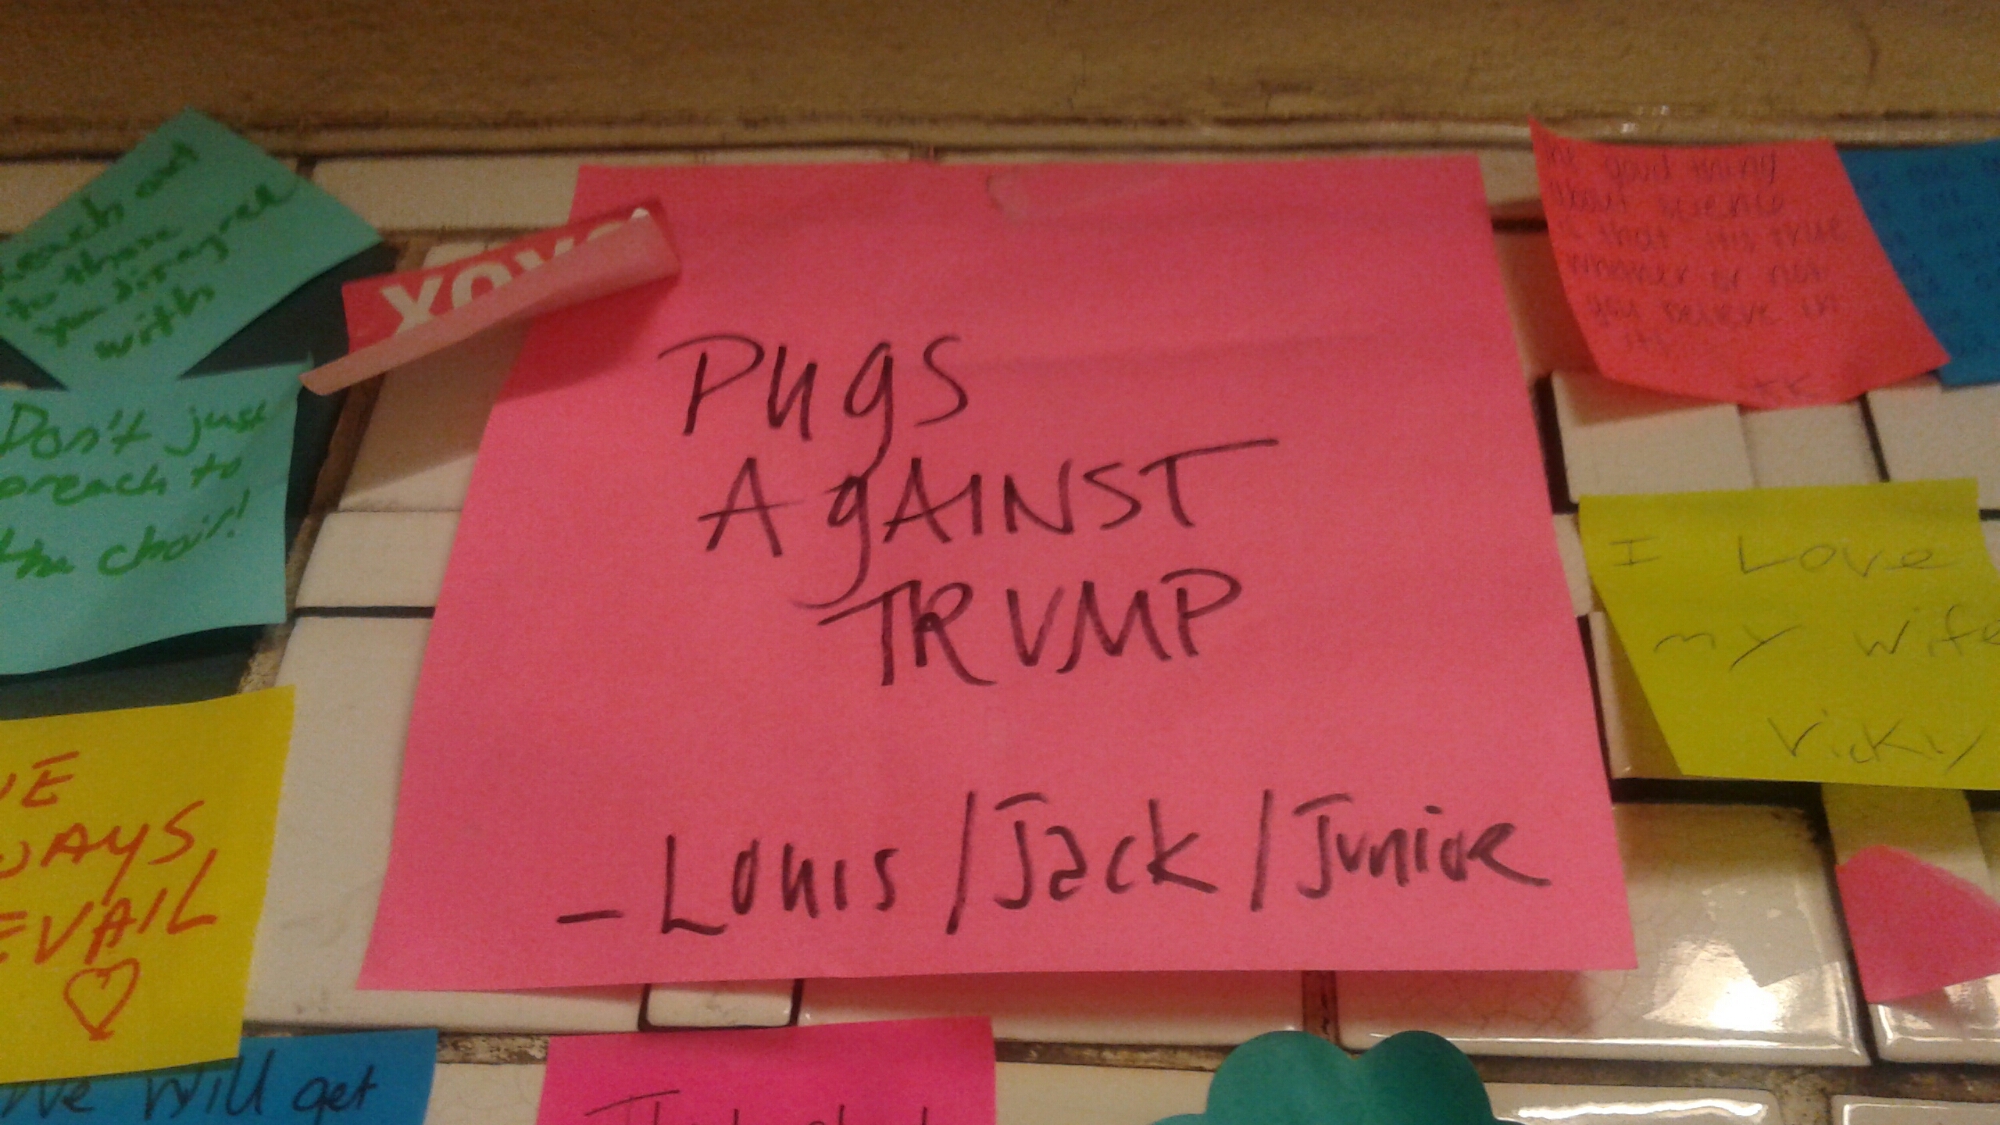 Reach out
to those
you disagree
with
XOXO
Don't just
preach to
the choir!
Pugs
AgAINST
TRUMP
- Louis / Jack / Junior
The good thing
about science
is that it's true
whether or not
you believe in
it.
I Love
my wife
Vicky
VE
WAYS
EVAIL
We will get